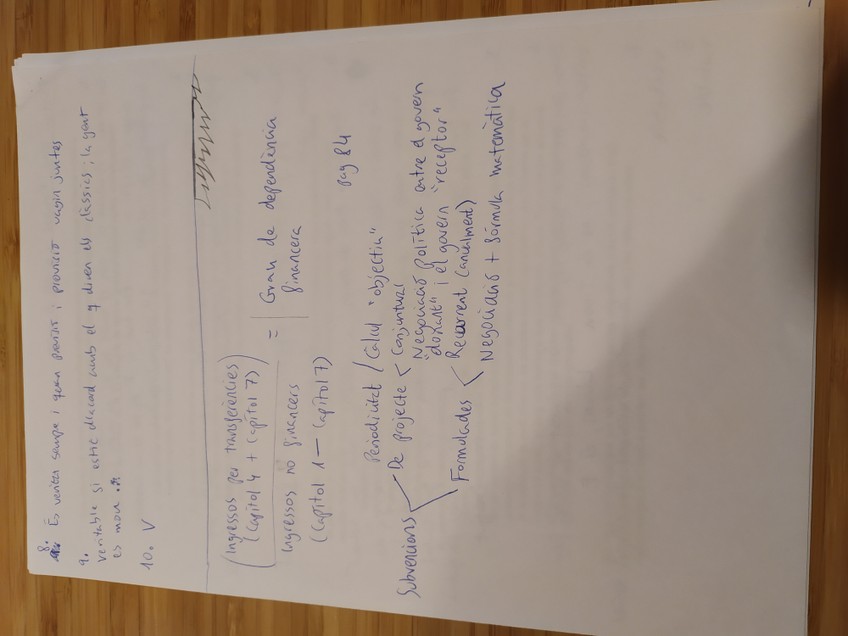 8. És veritat sempre i quan previsió i provisió vagin juntes
9. Veritable si estic d'acord amb el q diuen els clàssics, la gent
es mou
10. V
Ingressos per transferències
(Capítol 4 + Capítol 7)
Ingressos no financers
(Capítol 1 — Capítol 7)
= Grau de dependència
financera
pag 84
Periodicitat / Càlcul "objectiu"
Subvencions
De projecte < Conjuntural
Negociació política entre el govern
"donant" i el govern "receptor"
Formulades < Recurrent (anualment)
Negociació + fórmula matemàtica